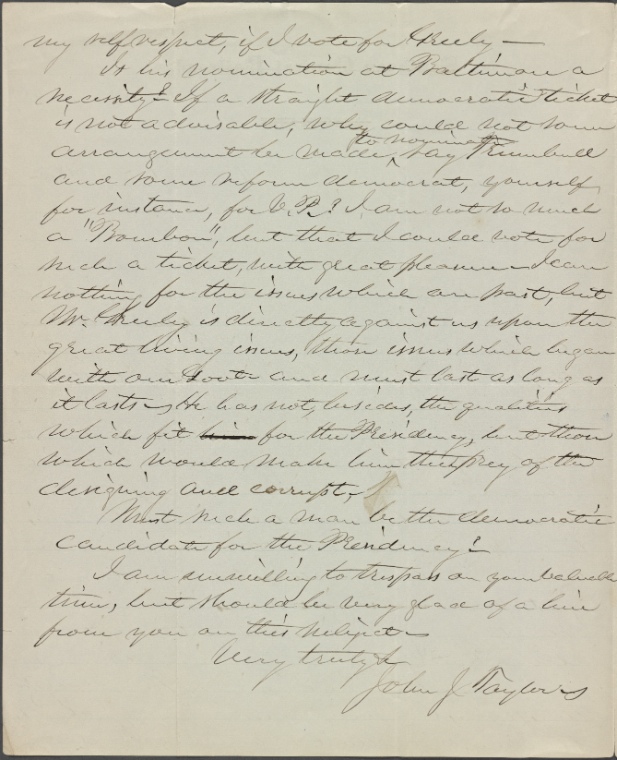 my self respect, if I vote for Greely —
Is his nomination at Baltimore a
necessity? If a straight democratic ticket
is not advisable, why could not some
to nominate
arrangement be made, say Trumbull
and some reform democrat, yourself,
for instance, for V. P.? I am not so much
a "Bourbon", but that I could vote for
such a ticket, with great pleasure — I care
nothing for the issues which are past, but
Mr. Greeley is directly against us upon the
great living issues, those issues which began
with our Govt and must last as long as
it lasts — He has not, besides, the qualities
which fit him for the Presidency, but those
which would make him the prey of the
designing and corrupt —
Must such a man be the democratic
candidate for the Presidency?
I am unwilling to trespass on your valuable
time, but should be very glad of a line
from you on this subject —
Very truly &
John J Taylor